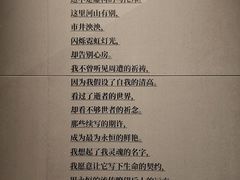 这里河山有别,
市井泱泱,
闪烁霓虹灯光,
却告别心房。
我不曾听见周遭的祈祷,
因为我假设了自我的清高。
看过了逝者的世界,
却看不够世者的祈念。
那些续写的期许,
成为最为永恒的鲜艳。
我想起了我灵魂的名字,
我愿意让它写下生命的契约,